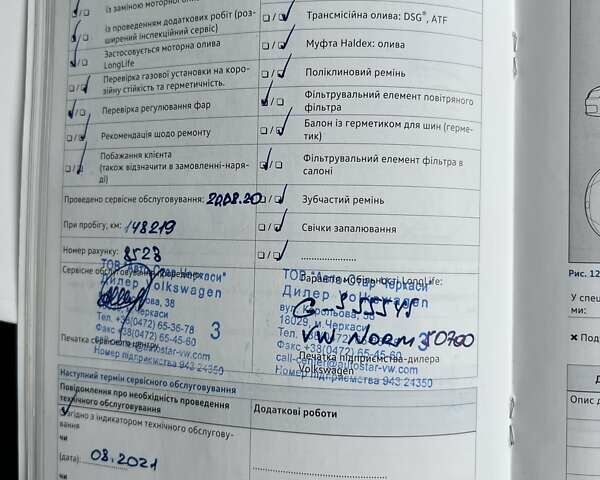 із заміною моторної
☑/❏ із проведенням додаткових робіт (роз-
ширений інспекційний сервіс)
☑/❏ Застосовується моторна олива
LongLife
❏/☑ Перевірка газової установки на коро-
зійну стійкість та герметичність.
☑/❏ Перевірка регулювання фар
❏/☑ Рекомендація щодо ремонту
❏/☑ Побажання клієнта
(також відзначити в замовленні-наря-
ді)
Проведено сервісне обслуговування: 20.08.20
При пробігу, км: 148219
Номер рахунку: 8523
Сервісне обслуговування
ТОВ "Авто Стар Черкаси"
Дилер Volkswagen
38
Черкаси
Тел. +38(0472) 65-36-78
Факс +38(0472) 65-45-60
3
Печатка сервісного центру
autostar-vw.com
Номер підприємства 943 24350
❏/☑ Трансмісійна олива: DSG®, ATF
❏/☑ Муфта Haldex: олива
❏/☑ Поліклиновий ремінь
☑/❏ Фільтрувальний елемент повітряного
фільтра
❏/☑ Балон із герметиком для шин (герме-
тик)
☑/❏ Фільтрувальний елемент фільтра в
салоні
❏/☑ Зубчастий ремінь
❏/☑ Свічки запалювання
❏/☑ ....................
Гарантія мобільності LongLife:
ТОВ "Авто Стар Черкаси"
Дилер Volkswagen
вул.
18029, м. Черкаси
VW NORM 50700
Факс +38(0472) 65-45-60
3
Печатка підприємства-дилера
call-center@autostar-vw.com
Volkswagen
Номер підприємства 943 24350
Наступний термін сервісного обслуговування
Повідомлення про необхідність проведення
технічного обслуговування
Додаткові роботи
Згідно з індикатором технічного обслугову-
вання
чи
(дата): 08.2021
чи
Рис. 12
У спец
ми:
✖ Под
Опис д